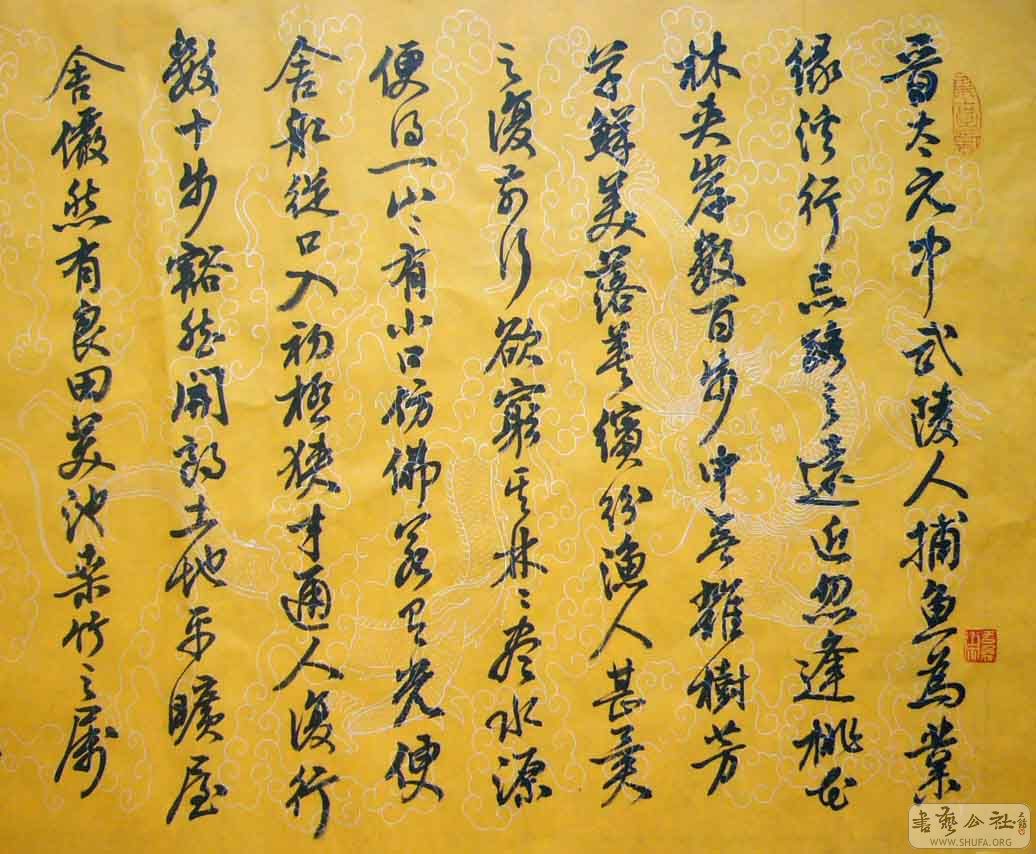 晋太元中武陵人捕鱼為業
缘溪行忘路之遠近忽逢桃花
林夹岸數百步中無雜樹芳
草鲜美落英繽纷漁人甚異
之復前行欲窮其林〻尽水源
便得一山〻有小口仿佛若有光便
舍船從口入初極狭才通人復行
數十步豁然開朗土地平曠屋
舍儼然有良田美池桑竹之属
書藝公社
WWW.SHUFA.ORG